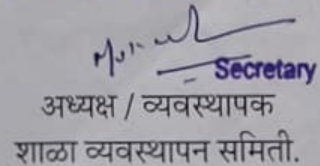 Secretary
अध्यक्ष / व्यवस्थापक
शाळा व्यवस्थापन समिती.